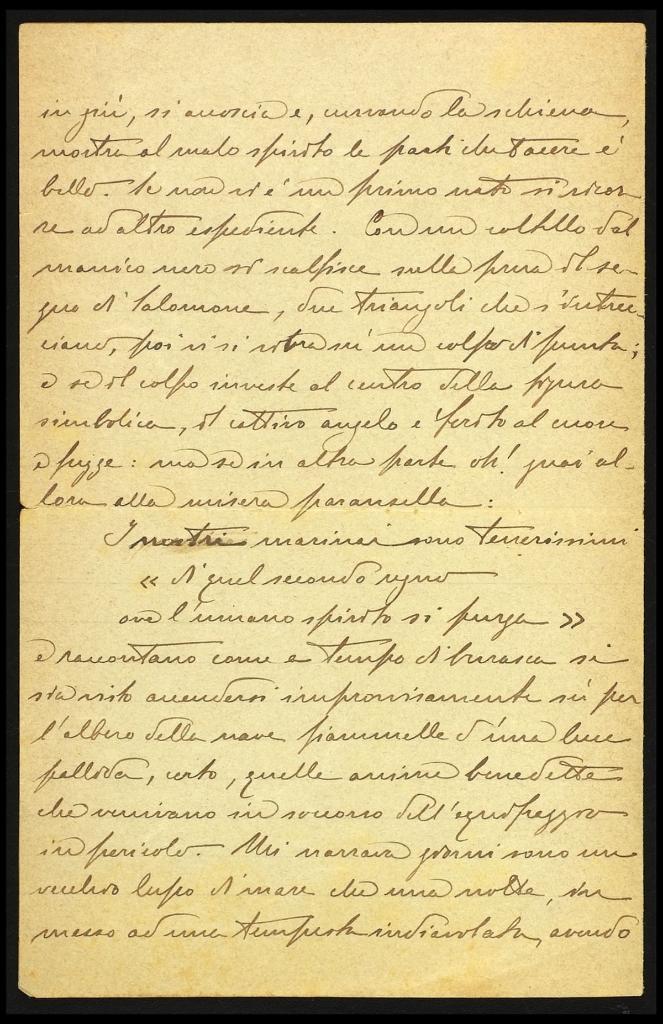 in giù, si accoscia e, curvando la schiena,
mostra al malo spirito le parti che tacere è
bello. Se non vi è un primo nato si ricor-
re ad altro espediente. Con un coltello dal
manico nero si scalfisce sulla prua il se-
gno di Salomone, due triangoli che s'intrec-
ciano, poi vi si vibra su un colpo di punta;
e se il colpo investe al centro della figura
simbolica, il cattivo angelo è ferito al cuore
e fugge: ma se in altra parte oh! guai al-
lora alla misera paranzella:
I nostri marinai sono tenerissimi
« di quel secondo regno
ove l'umano spirito si purga »
e raccontano come a tempo di burrasca si
sia visto accendersi improvvisamente su per
l'albero della nave fiammelle d'una luce
pallida, certo, quelle anime benedette
che venivano in soccorso dell'equipaggio
in pericolo. Mi narrava giorni sono un
vecchio lupo di mare che una notte, in
mezzo ad una tempesta indiavolata, avendo